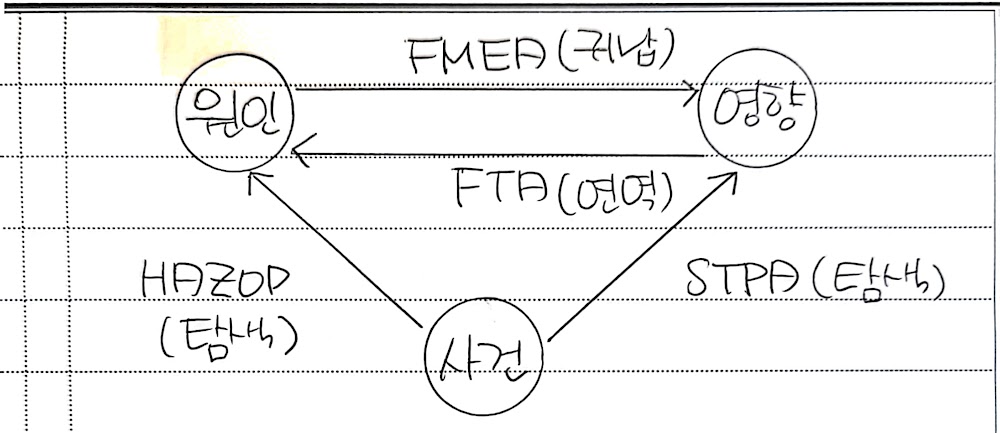 FMEA (귀납)
원인
영향
FTA (연역)
HAZOP
(탐색)
STPA (탐색)
사건